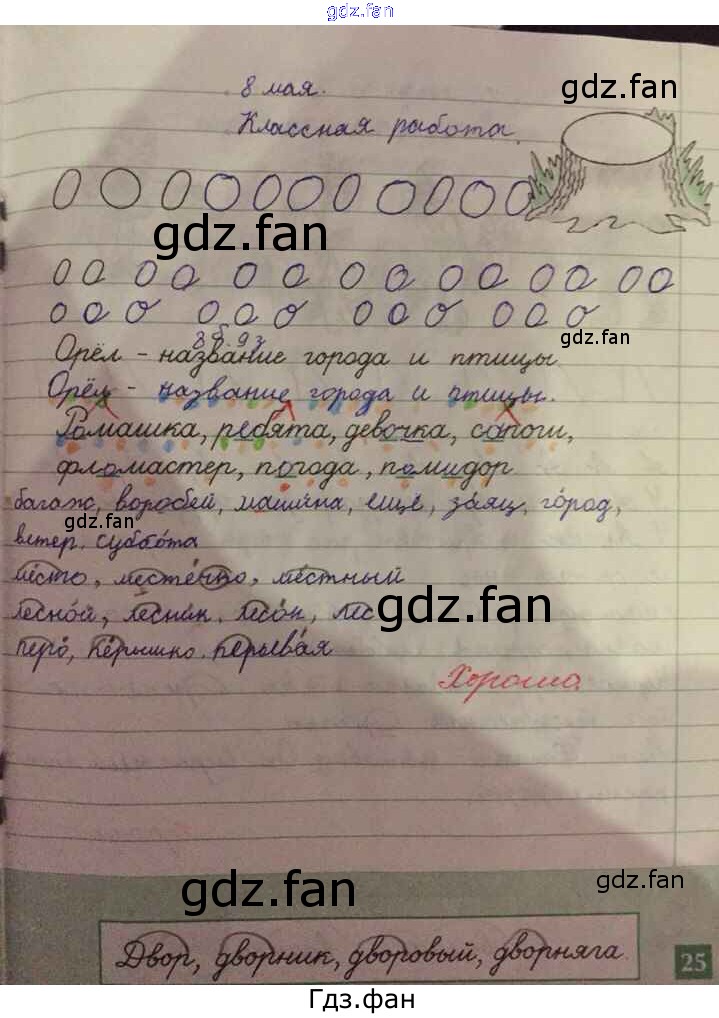 gdz.fan
8 мая.
gdz.fan
Классная работа.
gdz.fan
gdz.fan
Орёл - название города и птицы.
gdz.fan
Орёл - название города и птицы.
Ромашка, ребята, девочка, сапоги,
фломастер, погода, помидор
багаж, воробей, машина, ещё, заяц, город,
gdz.fan
ветер, суббота
место, местечко, местный
лесной, лесник, лесок, лес
gdz.fan
перо, пёрышко, перьевая
Хорошо.
gdz.fan
gdz.fan
Двор, дворник, дворовый, дворняга.
25
Гдз.фан